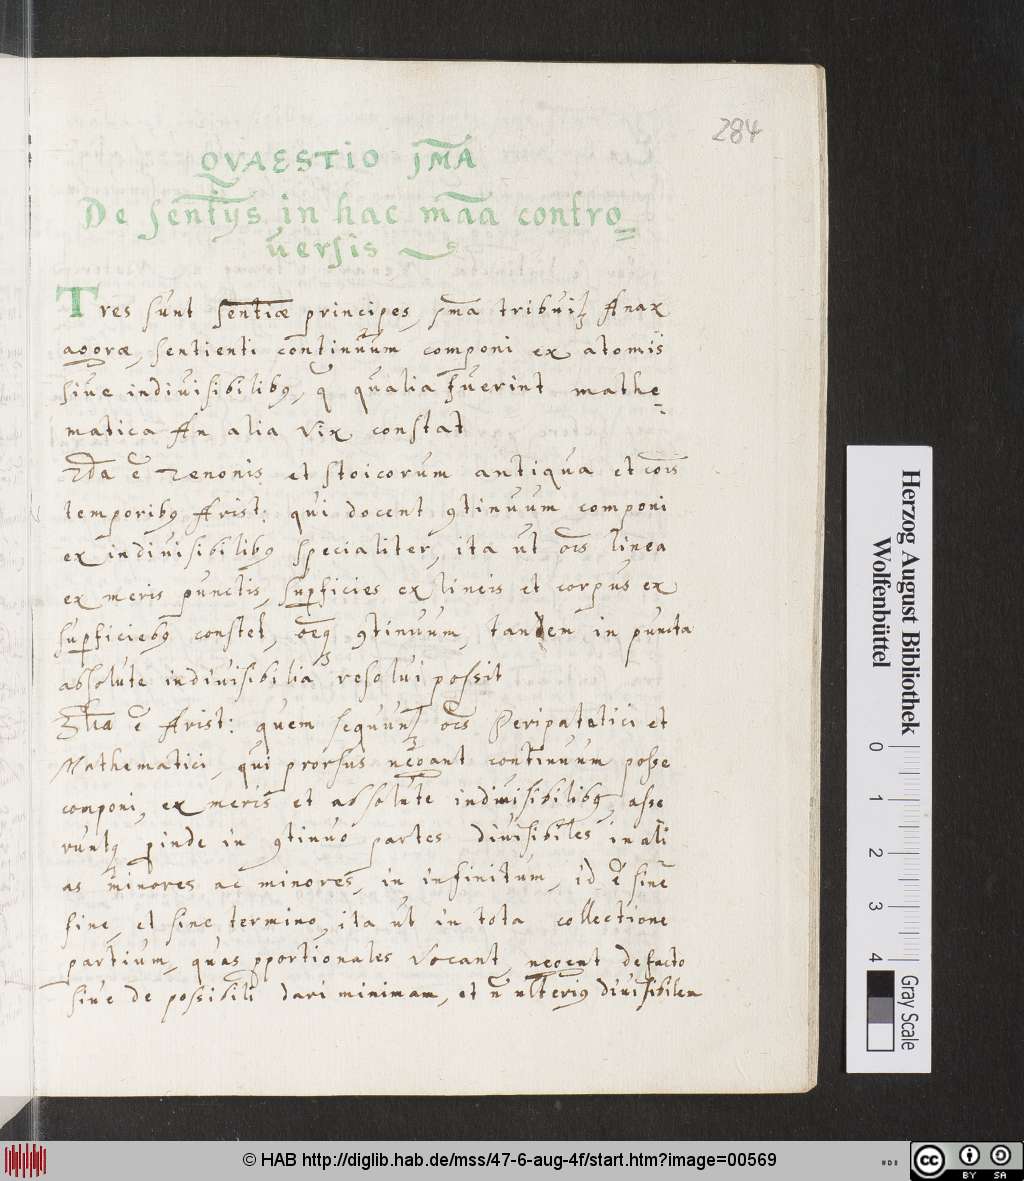 284
QVAESTIO jm̃a
De sent̃ijs in hac mãa contro=
uersis
Tres sunt sent̃iæ principes, jm̃a tribuit̃ Anax
agoræ, sentienti continuum componi ex atomis
siue indiuisibilibꝰ, q̃ qualia fuerint mathe=
matica An alia vix constat
2d̃a ẽ Zenonis et stoicorum antiqua et
temporibꝰ Arist: qui docent ꝯtinuum componi
ex indiuisibilibꝰ specialiter, ita ut oẽs linea
ex meris punctis, suꝑficies ex lineis et corpus ex
suꝑficiebꝰ constet, oẽq; ꝯtinuum, tandem in puncta
absolute indiuisibilia resolui possit
3tĩa ẽ Arist: quem sequunt̃ oẽs Peripatetici et
Mathematici, qui prorsus negant continuum posse
componi, ex meris et absolute indiuisibilibꝰ, asse
runtq; ꝓinde in ꝯtinuo partes diuisibiles in ali
as minores ac minores, in infinitum, id ẽ sine
fine, et sine termino, ita ut in tota collectione
partium, quas ꝓportionales vocant, negent defacto
siue de possibili dari minimam, et ñ ulterius diuisibilem
Herzog August Bibliothek
Wolfenbüttel
0 1 2 3 4
Gray Scale
© HAB http://diglib.hab.de/mss/47-6-aug-4f/start.htm?image=00569
cc BY SA